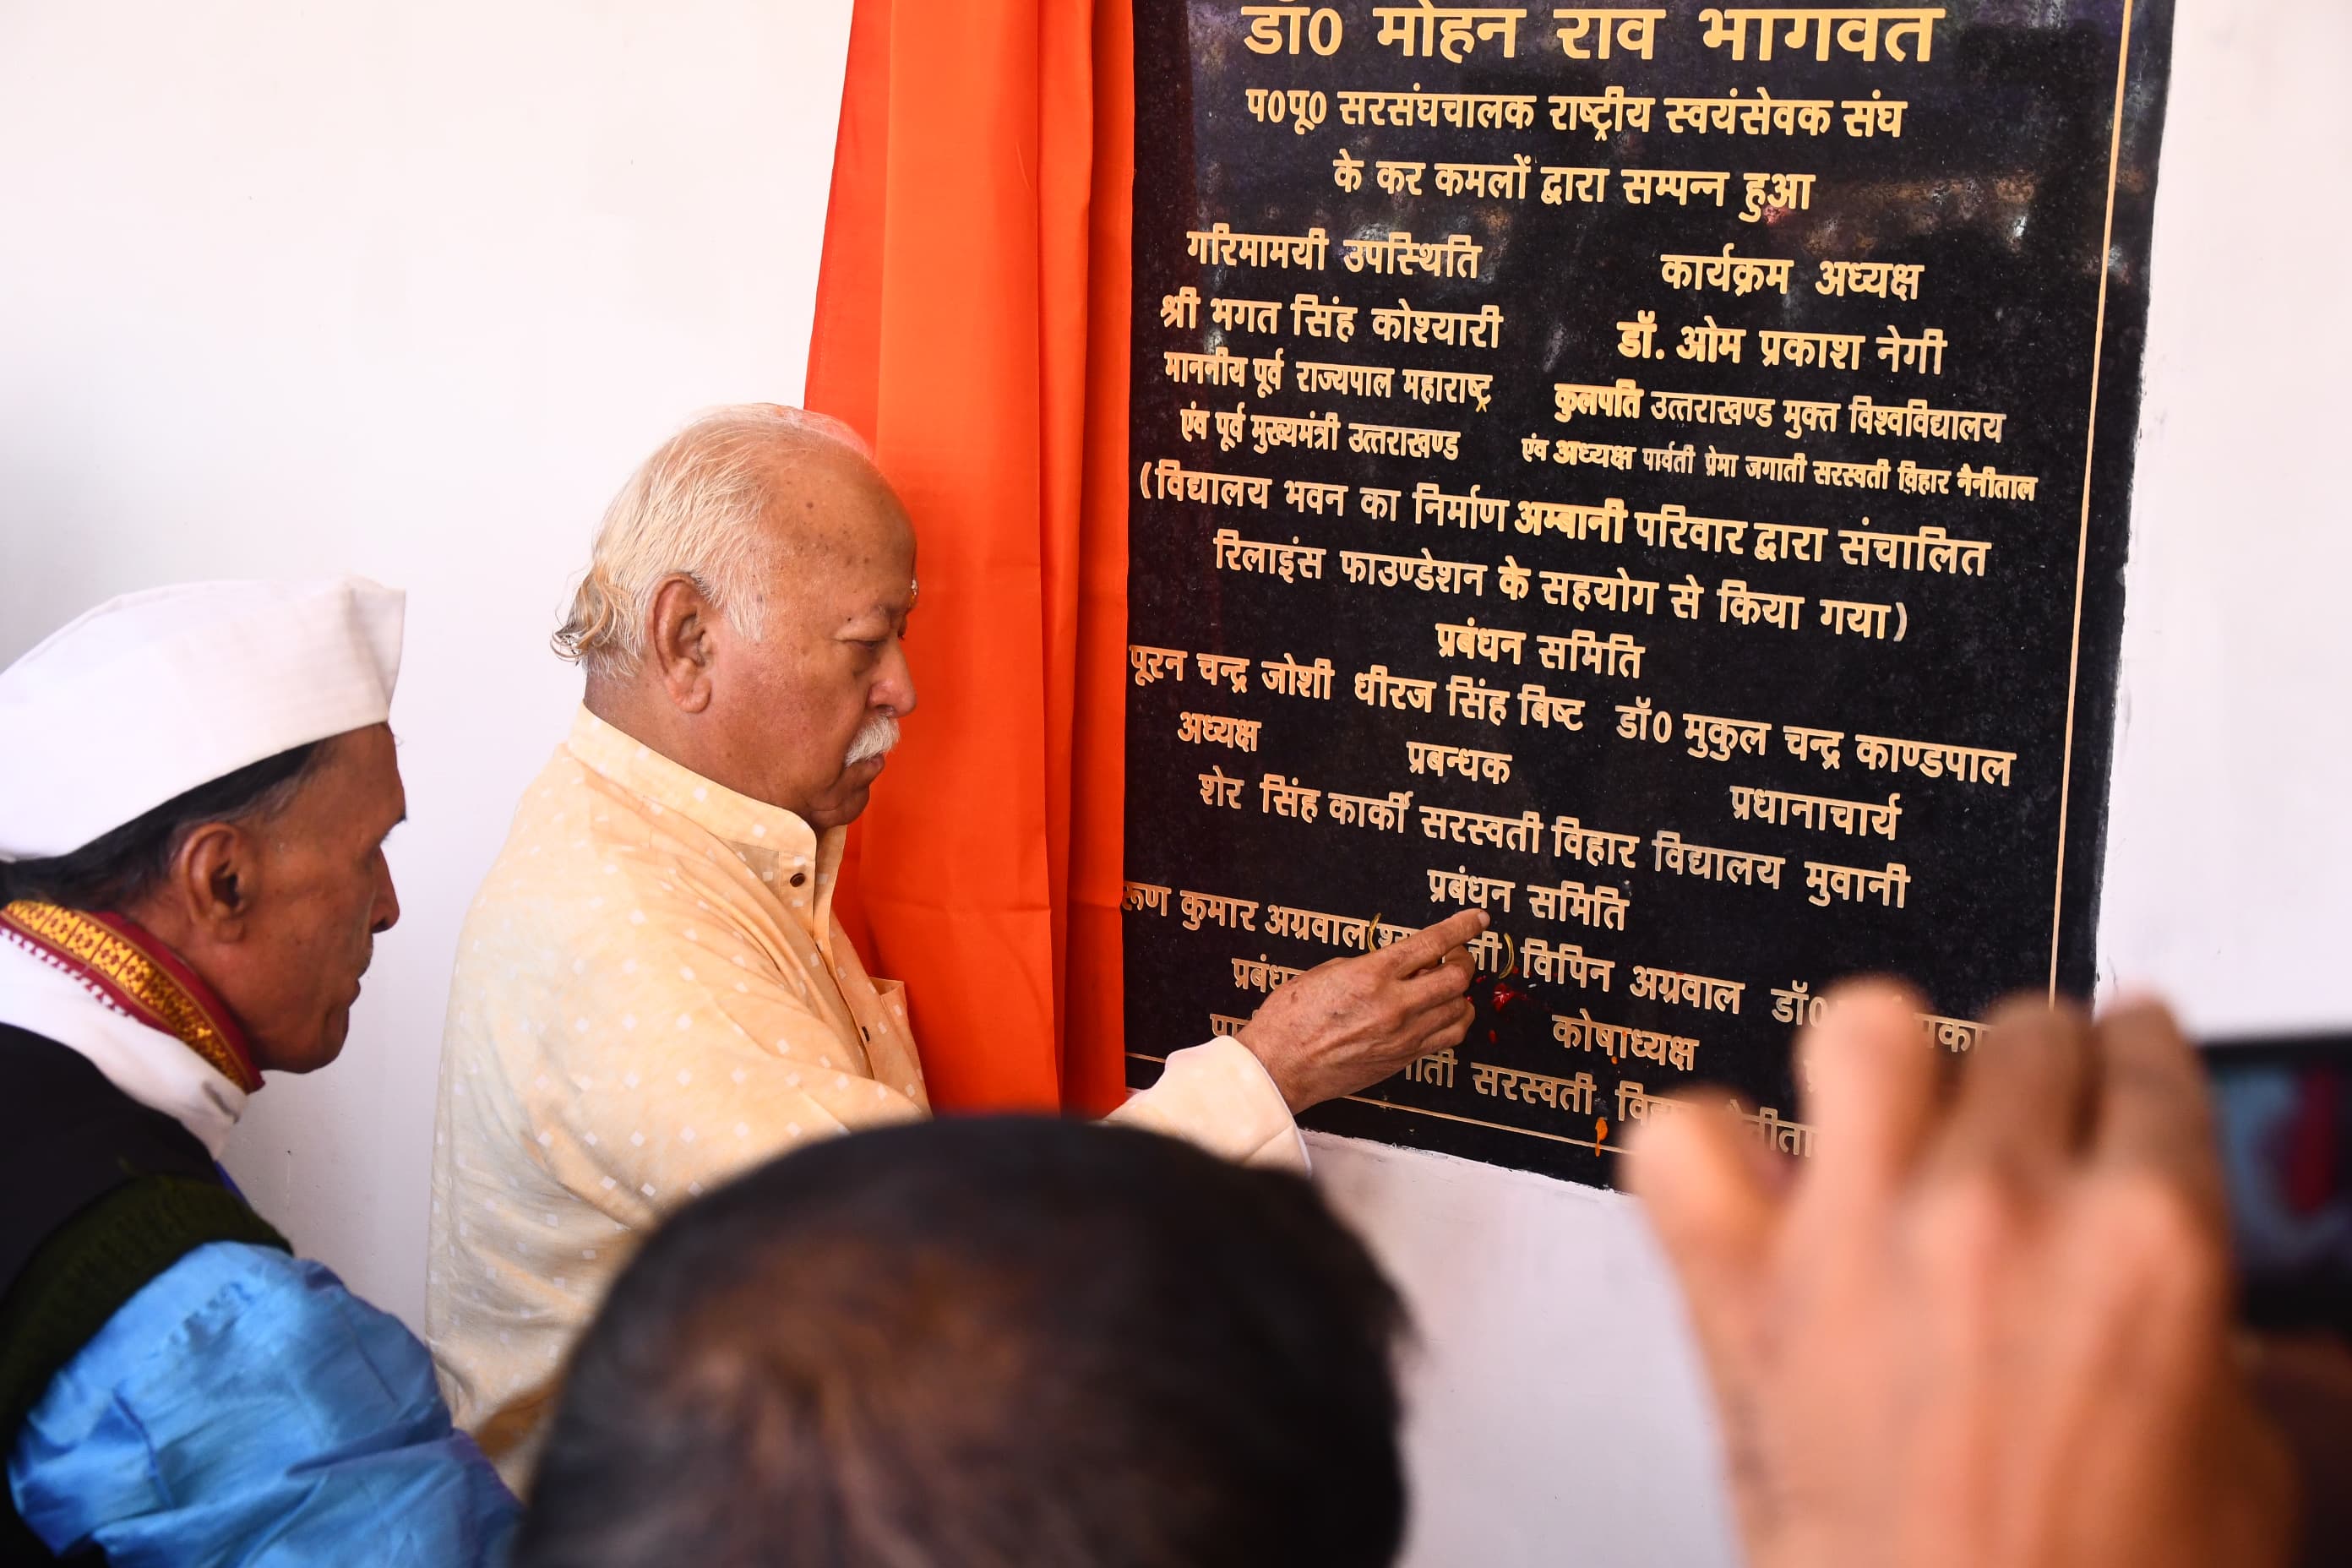 डॉ0 मोहन राव भागवत
प0पू0 सरसंघचालक राष्ट्रीय स्वयंसेवक संघ
के कर कमलों द्वारा सम्पन्न हुआ
गरिमामयी उपस्थिति
श्री भगत सिंह कोश्यारी
माननीय पूर्व राज्यपाल महाराष्ट्र
एंव पूर्व मुख्यमंत्री उत्तराखण्ड
कार्यक्रम अध्यक्ष
डॉ. ओम प्रकाश नेगी
कुलपति उत्तराखण्ड मुक्त विश्वविद्यालय
एंव अध्यक्ष पार्वती प्रेमा जगाती सरस्वती विहार नैनीताल
(विद्यालय भवन का निर्माण अम्बानी परिवार द्वारा संचालित
रिलाइंस फाउण्डेशन के सहयोग से किया गया)
प्रबंधन समिति
पूरन चन्द्र जोशी धीरज सिंह बिष्ट डॉ0 मुकुल चन्द्र काण्डपाल
अध्यक्ष प्रबन्धक प्रधानाचार्य
शेर सिंह कार्की सरस्वती विहार विद्यालय मुवानी
प्रबंधन समिति
कुमार अग्रवाल विपिन अग्रवाल डॉ0
कोषाध्यक्ष
सरस्वती